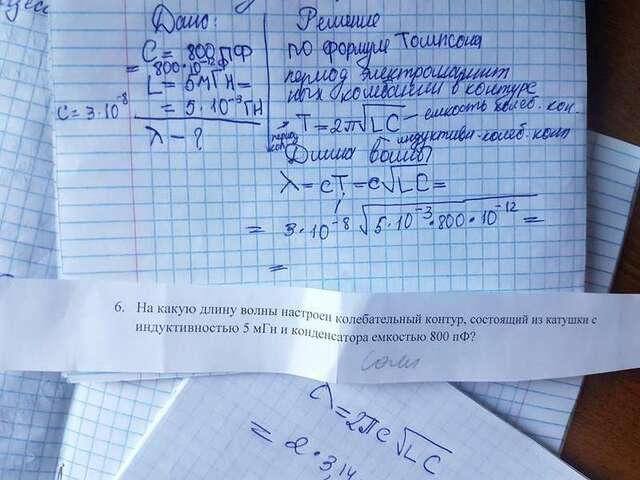 Дано:
C = 800 пФ
= 800·10⁻¹² Ф
L = 5 мГн =
= 5·10⁻³ Гн
c = 3·10⁻⁸
λ - ?
Решение
по формуле Томпсона
период электромагнит
ных колебаний в контуре
T = 2π√LC — емкость колеб. кон.
период
кол.
индуктивн. колеб. конт
Длина волны
λ = cT = c√LC =
= 3·10⁻⁸ √5·10⁻³·800·10⁻¹² =
=
6. На какую длину волны настроен колебательный контур, состоящий из катушки с
индуктивностью 5 мГн и конденсатора емкостью 800 пФ?
λ = 2πc√LC
= 2·3,14